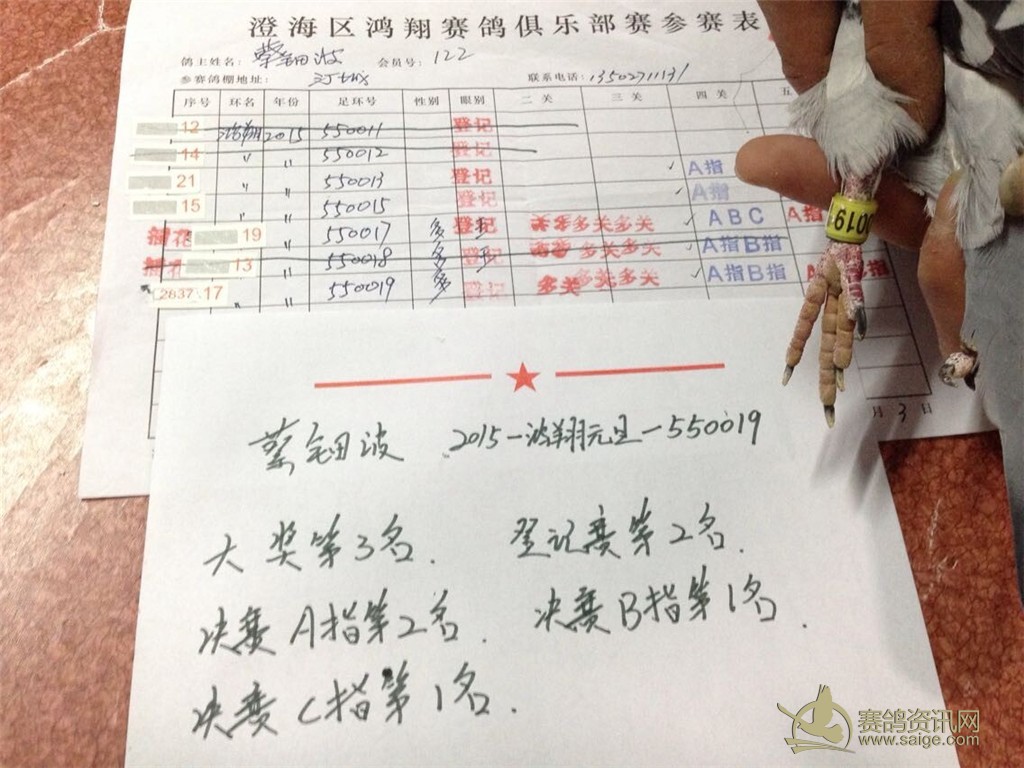 澄海区鸿翔赛鸽俱乐部赛参赛表
鸽主姓名: 蔡钿波 会员号: 122
参赛鸽棚地址: 联系电话: 13502711131
序号 环名 年份 足环号 性别 眼别 二关 三关 四关 五
12 鸿翔 2015 550011 登记
14 〃 〃 550012 登记
21 〃 〃 550013 登记 ✓ A指
15 〃 〃 550015 登记 ✓ A指
插花 19 〃 〃 550017 登记 多关多关 ✓ A B C A指
插花 13 〃 550018 登记 多关多关 ✓ A指B指
2837 17 〃 〃 550019 登记 多关 多关多关 ✓ A指B指
月 3 日
0019
蔡钿波 2015-鸿翔元旦-550019
大奖第3名. 登记赛第2名.
决赛A指第2名. 决赛B指第1名.
决赛C指第1名.
赛鸽资讯网
www.saige.com